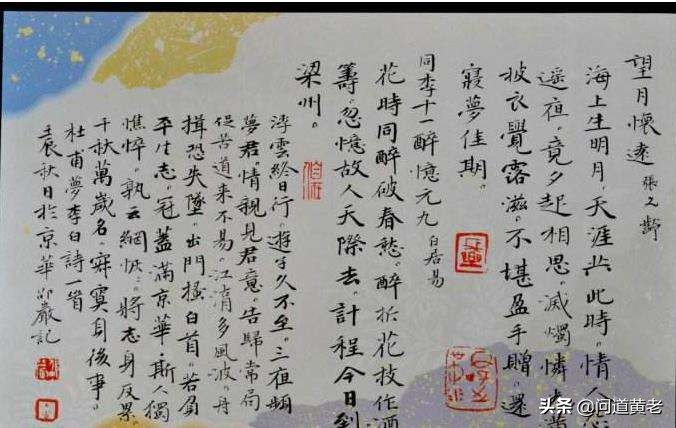 望月懷遠 張九齡
海上生明月。天涯共此時。情人怨
遥夜。竟夕起相思。滅燭憐光滿
披衣覺露滋。不堪盈手贈。還
寢夢佳期。
同李十一醉憶元九 白居易
花時同醉破春愁。醉折花枝作酒
籌。忽憶故人天際去。計程今日到
梁州。
浮雲終日行。遊子久不至。三夜頻
夢君。情親見君意。告歸常局
促苦道来不易。江湖多風波。舟
楫恐失墜。出門搔白首。若負
平生志。冠蓋滿京華。斯人獨
憔悴。孰云網恢。將老身反累。
千秋萬歲名。寂寞身後事。
杜甫夢李白詩一首
壬辰秋日於京華 邵巖記
头条 @问道黄老